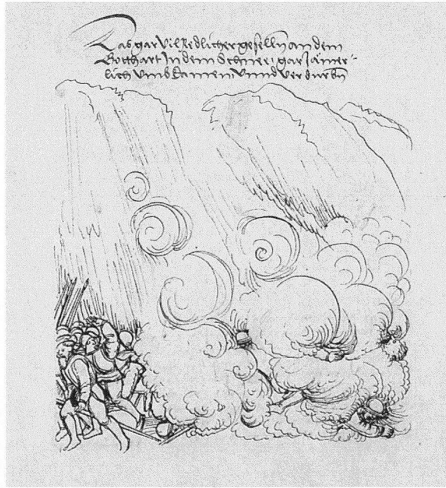 Das gar vil Redlicher gesellen an dem
Gotthart In dem Schnee gar Jämer-
lich umbkamen unnd verdurben